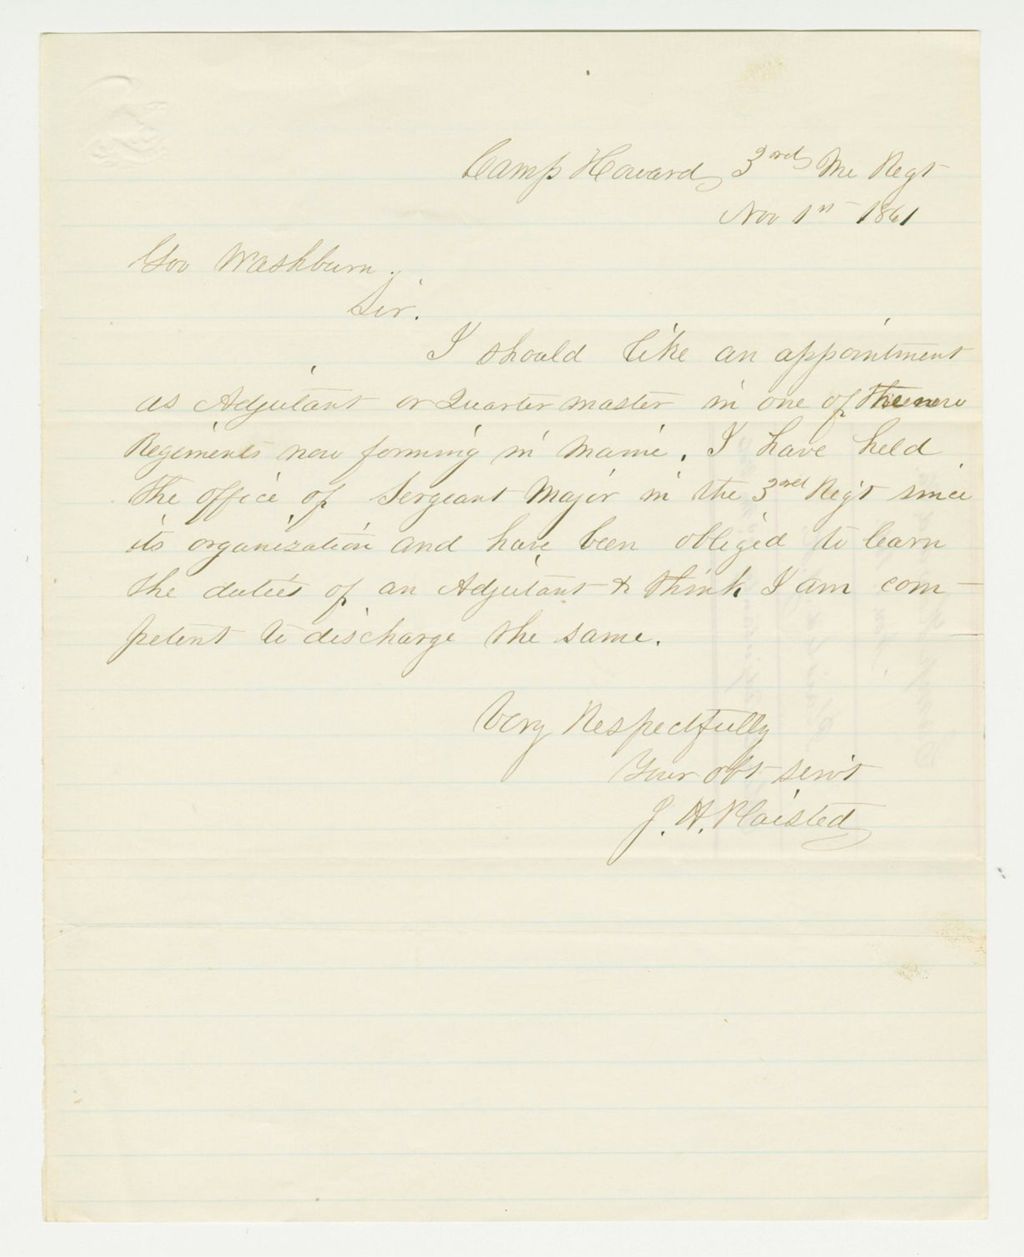 Camp Howard 3rd Me Regt
Nov 1st 1861
Gov Washburn.
Sir.
I should like an appointment
as Adjutant or Quarter master in one of the new
Regiments now forming in Maine. I have held
the office of Sergeant Major in the 3rd Reg't since
its organization and have been obliged to learn
the duties of an Adjutant & think I am com-
petent to discharge the same.
Very Respectfully
Your obt serv't
J. H. Plaisted